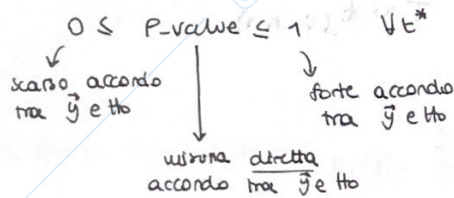 0 ≤ P-value ≤ 1 ∀t*
scarso accordo
tra y⃗ e H0
forte accordo
tra y⃗ e H0
misura diretta
accordo tra y⃗ e H0